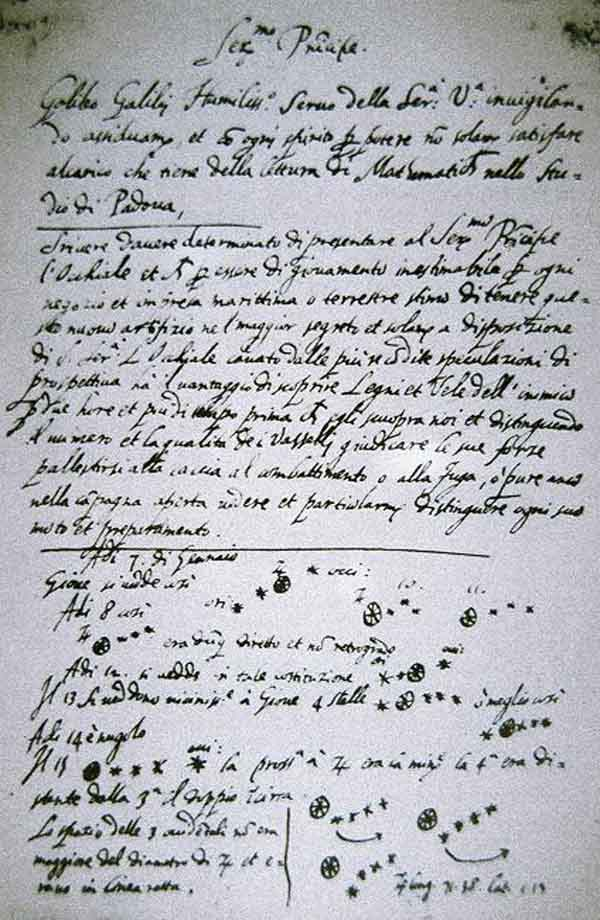 Ser.mo Principe.
Galileo Galilei Humiliss.o Servo della Ser.a V.a invigilan-
do assiduam.te et cō ogni spirito p potere nō solam.te satisfare
alcarico che tiene della lettura di Mathematica nello Stu-
dio di Padova,
Scrivere d'avere determinato di presentare al Ser.mo Principe
l'Occhiale et p essere di giovamento inestimabile p ogni
negozio et impresa marittima o terrestre stimo di tenere que-
sto nuovo artifizio nel maggior segreto et solam.te a disposizione
di S. Ser.a L'Occhiale cavato dalle più recōdite speculazioni di
prospettiva ha il vantaggio di scoprire Legni et Vele dell'inimico
p due hore et più di tempo prima ch'egli scuopra noi et distinguendo
il numero et la qualità dei Vasselli giudicare le sue forze
pallestirsi alla caccia al combattimento o alla fuga, o pure anco
nella cāpagna aperta vedere et particolarm.te distinguere ogni suo
moto et preparamento.
Adi 7. di Gennaio
Gione si vedde così occi:
Adi 8 così ori: 10. 11.
era dūq diretto et nō retrogrado
Adi 12. si vedde in tale costituzione
Il 13 si veddono vicinis.e à Giove 4 stelle è meglio così
Adi 14 è nugolo
Il 15 la pross.a à ♃ era la min.e la 4.a era di-
stante dalla 3.a il doppio
Lo spazio delle 3 occidētali nō era
maggiore del diametro di ♃ et e-
rano in linea retta.
long. 71. 38. Lat. 1. 13